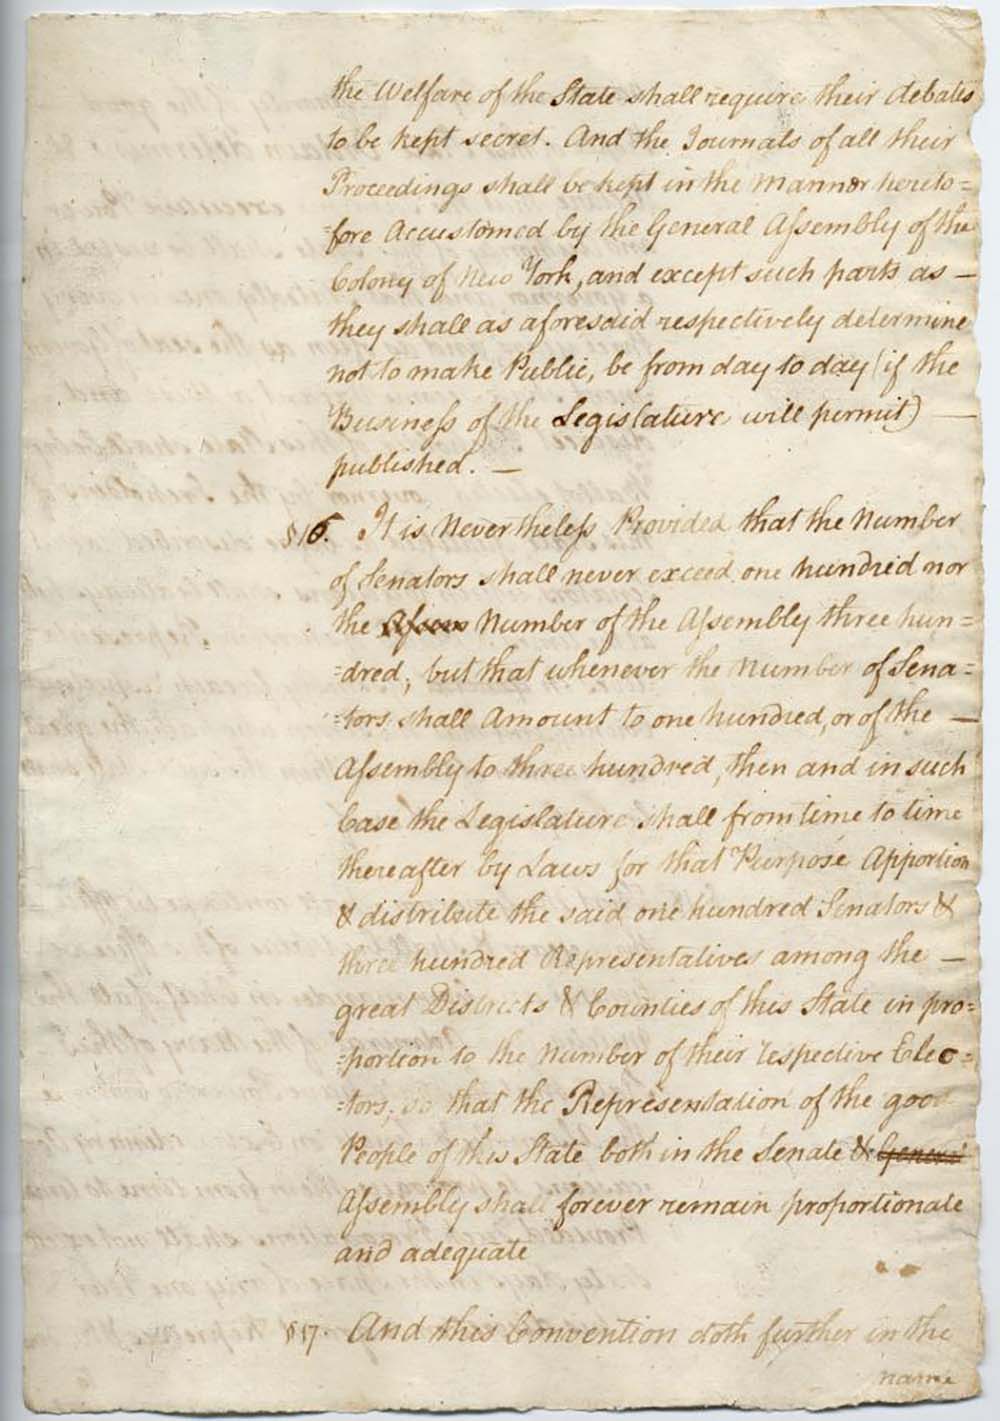 the Welfare of the State shall require their debates
to be kept secret. And the Journals of all their
Proceedings shall be kept in the Manner hereto=
=fore Accustomed by the General Assembly of the
Colony of New York, and except such parts as —
they shall as aforesaid respectively determine
not to make Public, be from day to day (if the
Business of the Legislature will permit) —
published. —
§16. It is Nevertheless Provided that the Number
of Senators shall never exceed one hundred nor
the Number of the Assembly three hun=
=dred; but that whenever the Number of Sena=
=tors shall Amount to one hundred, or of the —
Assembly to three hundred, then and in such
Case the Legislature shall from time to time
thereafter by Laws for that Purpose Apportion
& distribute the said one hundred Senators &
three hundred Representatives among the —
great Districts & Counties of this State in pro=
=portion to the Number of their respective Elec=
=tors; so that the Representation of the good
People of this State both in the Senate & General
Assembly shall forever remain proportionate
and adequate
§17. And this Convention doth further in the
name